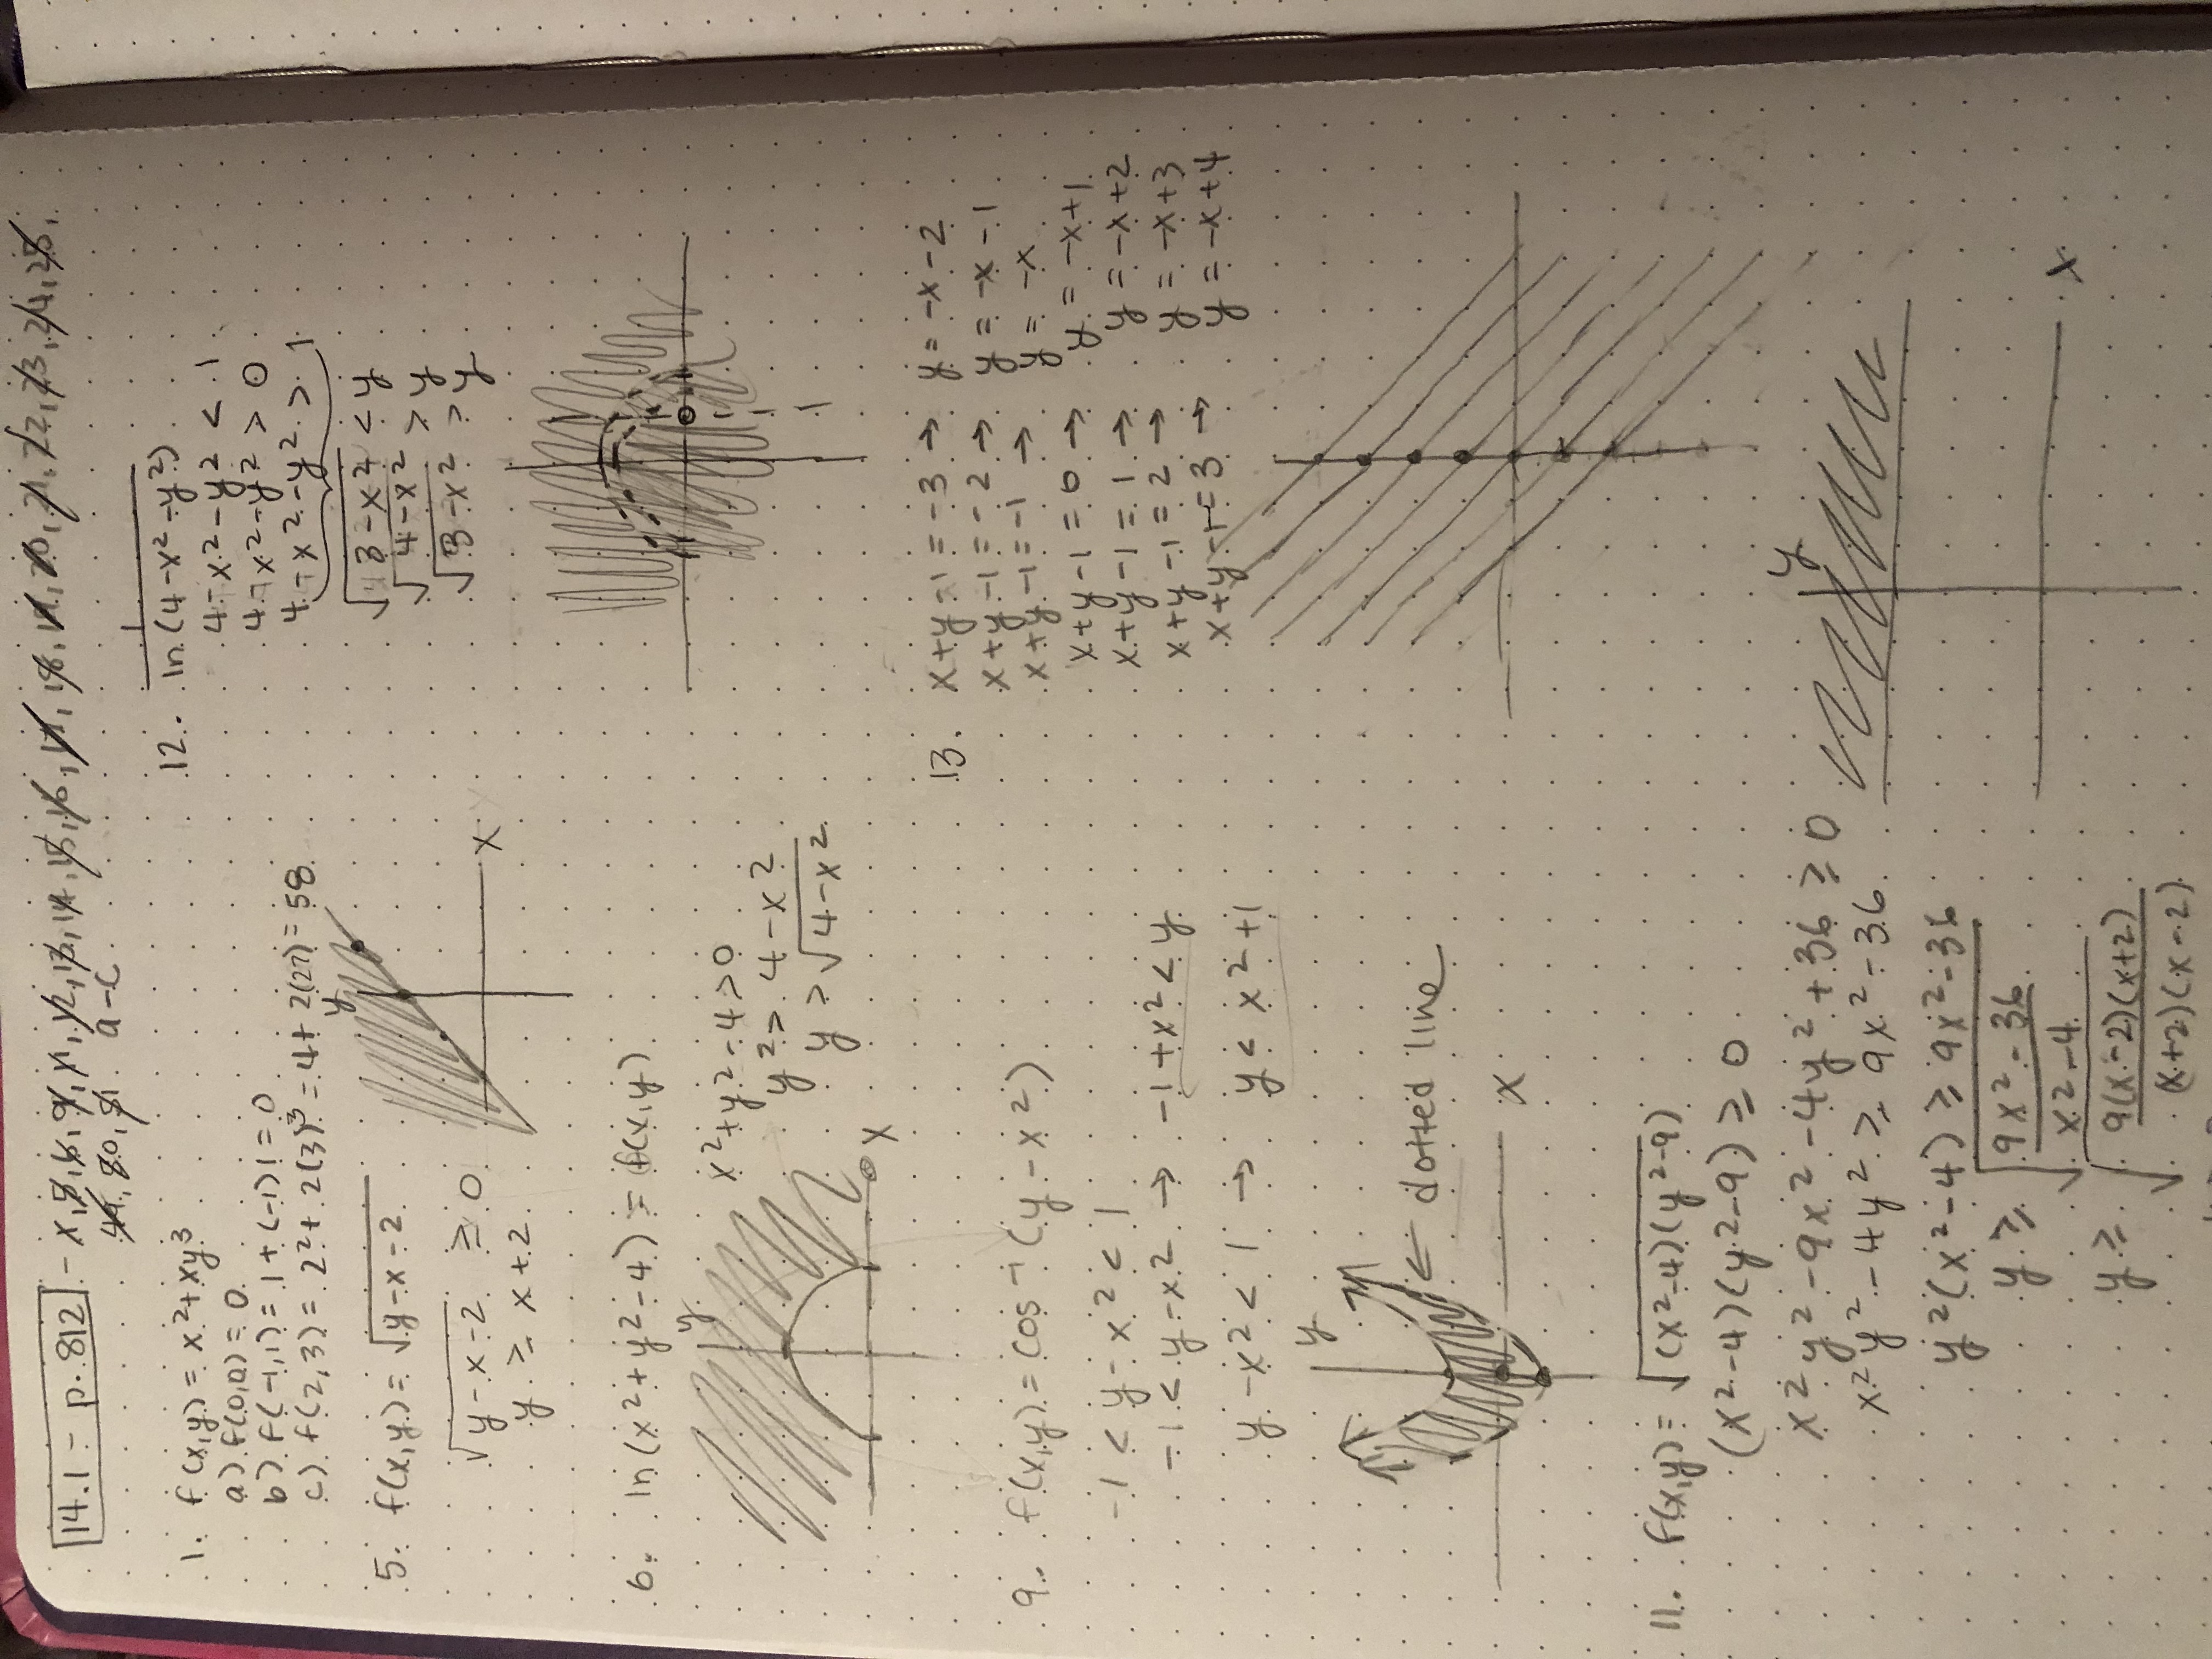 14.1 - p. 812 - x, 5, 6, 9, 11, 12, 13, 14, 15, 16, 17, 18, 19, 20, 21, 22, 23, 24, 25,
49, 80, 81 a-c
1. f(x,y) = x²+xy³
a) f(0,0) = 0
b) f(-1,1) = 1+(-1)1 = 0
c) f(2,3) = 2²+2(3)³ = 4+2(27) = 58
5. f(x,y) = √(y-x-2)
√(y-x-2) ≥ 0
y ≥ x+2
y
x
6. ln(x²+y²-4) = f(x,y)
y
x²+y²-4>0
y²> 4-x²
y > √(4-x²)
x
9. f(x,y) = cos⁻¹(y-x²)
-1 < y-x² < 1
-1 < y-x² → -1+x² < y
y-x² < 1 → y < x²+1
y
← dotted line
x
11. f(x,y) = √((x²-4)(y²-9))
(x²-4)(y²-9) ≥ 0
x²y²-9x²-4y²+36 ≥ 0
x²y²-4y² ≥ 9x²-36
y²(x²-4) ≥ 9x²-36
y ≥ √((9x²-36)/(x²-4))
y ≥ √((9(x-2)(x+2))/((x+2)(x-2)))
y
x
12. 1/ln(4-x²-y²)
4-x²-y² < 1
4-x²-y² > 0
4-x²-y² > 1
√(3-x²) < y
√(4-x²) > y
√(3-x²) > y
1
13. x+y-1 = -3 → y = -x-2
x+y-1 = -2 → y = -x-1
x+y-1 = -1 → y = -x
x+y-1 = 0 → y = -x+1
x+y-1 = 1 → y = -x+2
x+y-1 = 2 → y = -x+3
x+y-1 = 3 → y = -x+4